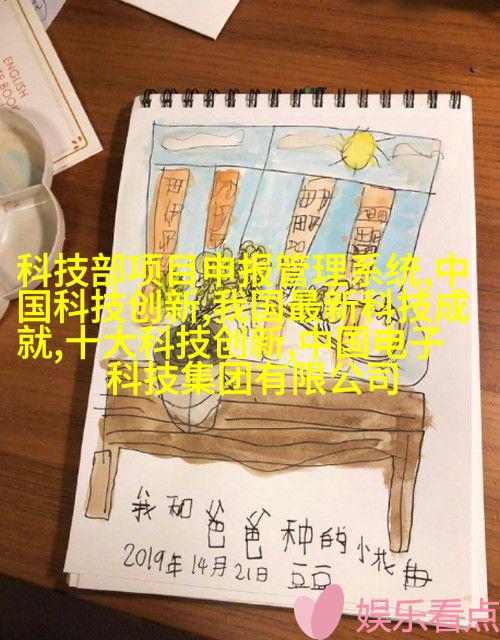 ENGLISH
E BOOK
科技部项目申报管理系统,中
国科技创新,我国最新科技成
就,十大科技创新,中国电子
科技集团有限公司
我和爸爸种的小
2019年14月21日 豆豆
娱乐看点